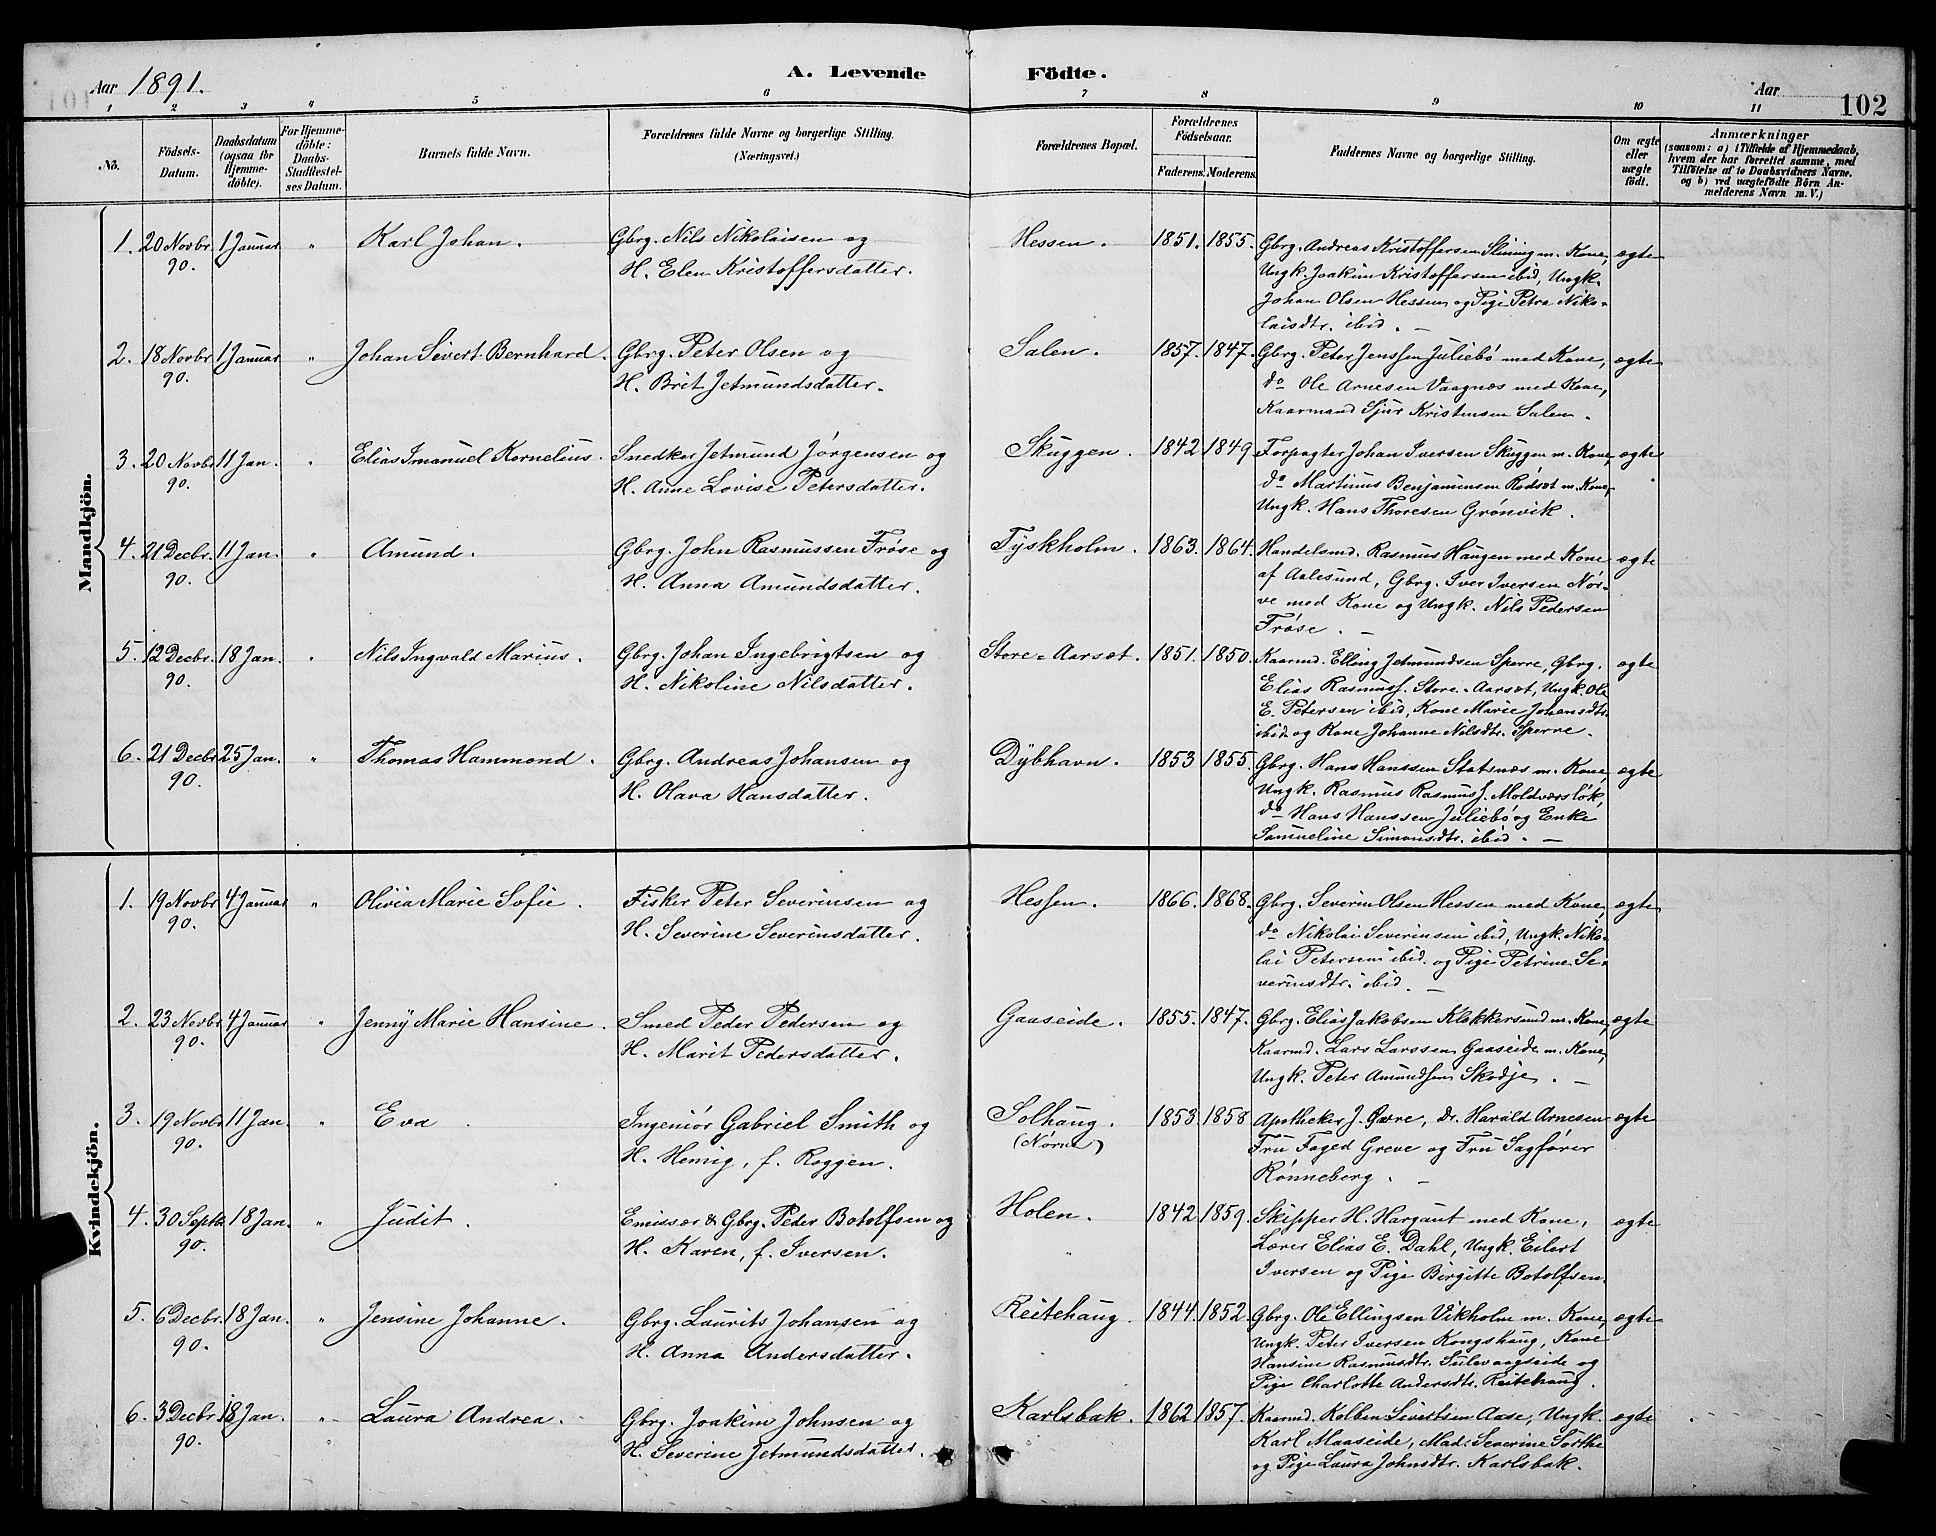 Aar 1891.
A. Levende Födte.
Aar
102
1 2 3 4 5 6 7 8 9 10 11
No.
Födsels-Datum.
Daabsdatum (ogsaa for Hjemmedöbte).
For Hjemmedöbte: Daabs-Stadfæstelses Datum.
Barnets fulde Navn.
Forældrenes fulde Navne og borgerlige Stilling. (Næringsvei.)
Forældrenes Bopæl.
Forældrenes Födselsaar.
Faderens. Moderens.
Faddernes Navne og borgerlige Stilling.
Om ægte eller uægte født.
Anmærkninger
(saasom: a) i Tilfælde af Hjemmedaab, hvem der har forrettet samme, med Tilföielse af to Daabsvidners Navne. og b) ved uægtefödte Börn Anmelderens Navn m. V.)
Mandkjön.
1. 20 Novbr. 90. 1 Januar " Karl Johan. Gbrg. Nils Nikolaisen og
H. Elen Kristoffersdatter.
Hessen. 1851. 1855. Gbrg. Andreas Kristoffersen Slining m. Kone, ægte
Ungk. Joakim Kristoffersen ibid, Ungk.
Johan Olsen Hessen og Pige Petra Niko-
laisdtr. ibid. —
2. 18 Novbr 90. 1 Januar " Johan Sivert Bernhard. Gbrg. Peter Olsen og
H. Brit Jetmundsdatter.
Salen. 1857. 1847. Gbrg. Peter Jenssen Juliebø med Kone, ægte
do Ole Arnesen Vaagnæs med Kone,
Kaarmand Sjur Kristensen Salen.
3. 20 Novbr 90. 11 Jan. " Elias Imanuel Kornelius. Snedker Jetmund Jørgensen og
H. Anne Lovise Petersdatter.
Skuggen. 1842 1849 Forpagter Johan Iversen Skuggen m. Kone, ægte
do Martinus Benjaminsen Rødsæt m. Kone,
Ungk. Hans Thoresen Grønvik.
4. 21 Decbr. 90. 11 Jan. " Amund. Gbrg. John Rasmussen Frøse og
H. Anna Amundsdatter.
Tyskholm. 1863. 1864. Handelsmd. Rasmus Haugen med Kone ægte
af Aalesund, Gbrg. Iver Iversen Nør-
ve med Kone og Ungk. Nils Pedersen
Frøse. —
5. 12 Decbr. 90. 18 Jan. " Nils Ingvald Marius. Gbrg. Johan Ingebrigtsen og
H. Nikoline Nilsdatter.
Store-Aarsæt. 1851. 1850. Kaarmd. Elling Jetmundsen Sperre, Gbrg. ægte
Elias Rasmuss. Store-Aarsæt, Ungk. Ole
E. Petersen ibid, Kone Marie Johansdtr.
ibid og Kone Johanne Nilsdtr. Sperre.
6. 21 Decbr 90. 25 Jan. " Thomas Hammond. Gbrg. Andreas Johansen og
H. Olava Hansdatter.
Dybhavn. 1853 1855. Gbrg. Hans Hanssen Statsnæs m. Kone, ægte
Ungk. Rasmus Rasmuss. Moldværsløk,
do Hans Hanssen Juliebø og Enke
Samueline Simonsdtr. ibid. —
Kvindekjön.
1. 19 Novbr 90. 4 Januar " Olivia Marie Sofie. Fisker Peter Severinsen og
H. Severine Severinsdatter.
Hessen. 1866. 1868. Gbrg. Severin Olsen Hessen med Kone, ægte
do Nikolai Severinsen ibid, Ungk. Niko-
lai Petersen ibid. og Pige Petrine Se-
verinsdtr. ibid. —
2. 23 Novbr 90. 4 Januar " Jenny Marie Hansine. Smed Peder Pedersen og
H. Marit Pedersdatter.
Gaaseide. 1855. 1847. Gbrg. Elias Jakobsen Klokkersund m. Kone, ægte
Kaarmd. Lars Larssen Gaaseide m. Kone,
Ungk. Peter Amundsen Skodje. —
3. 19 Novbr 90. 11 Jan. " Eva. Ingeniör Gabriel Smith og
H. Hennig, f. Roggen.
Solhaug. (Nørve) 1853. 1858 Apotheker J. Øwre, Dr. Harald Arnesen ægte
Fru Foged Greve og Fru Sagfører
Rønneberg. —
4. 30 Septr. 90. 18 Jan. " Judit. Emissær & Gbrg. Peder Botolfsen og
H. Karen, f. Iversen.
Holen. 1842 1859. Skipper H. Hargaut med Kone, ægte
Lærer Elias E. Dahl, Ungk. Eilert
Iversen og Pige Birgitte Botolfsen.
5. 6 Decbr. 90. 18 Jan. " Jensine Johanne. Gbrg. Laurits Johansen og
H. Anna Andersdatter.
Reitehaug. 1844. 1852. Gbrg. Ole Ellingsen Vikholm m. Kone, ægte
Ungk. Peter Iversen Kongshaug, Kone
Hansine Rasmusdtr. Sulevaagseide og
Pige Charlotte Andersdtr. Reitehaug.
6. 3 Decbr. 90. 18 Jan. " Laura Andrea. Gbrg. Joakim Johnsen og
H. Severine Jetmundsdatter.
Karlsbak. 1862 1857. Kaarmd. Kolben Sivertsen Aase, Ungk. ægte
Karl Maaseide, Mad. Severine Sorthe
og Pige Laura Johnsdtr. Karlsbak.